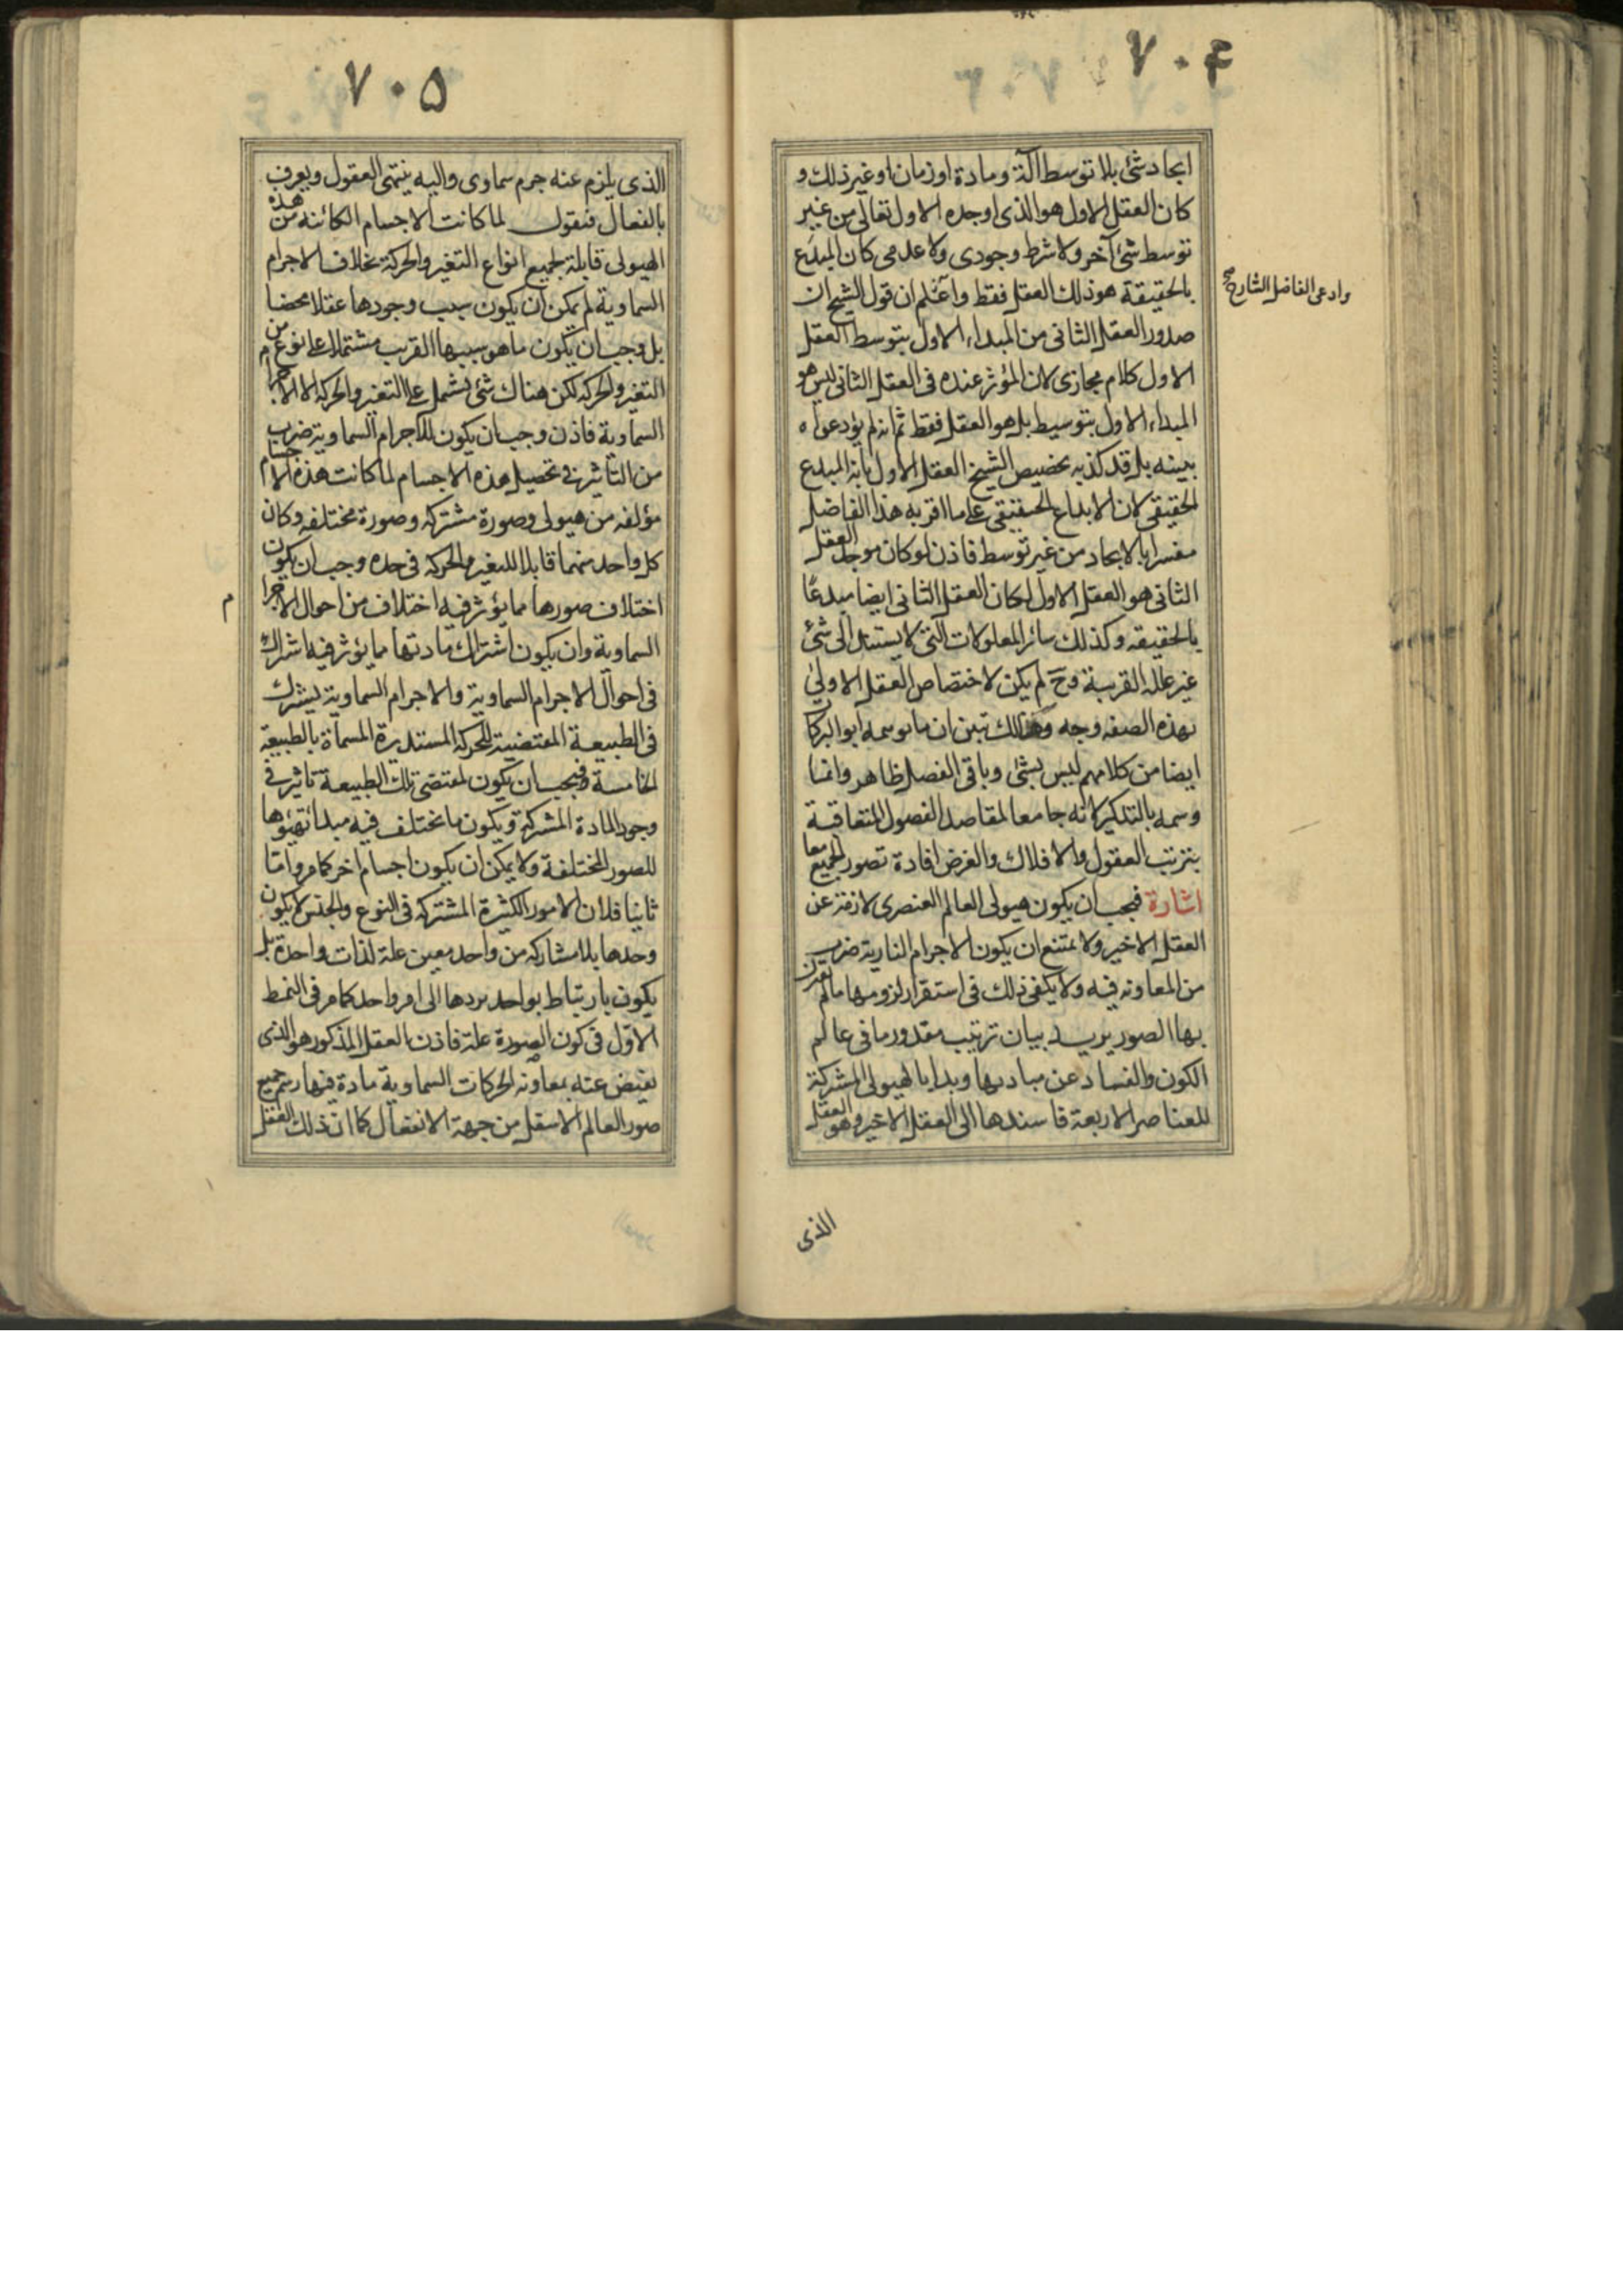 ٧٠۴
ايجاد شئ بلا توسط آلة ومادة او زمان او غير ذلك و
كان العقل الاول هو الذى اوجده الاول تعالى من غير
توسط شئ آخر ولا شرط وجودى ولا عدمى كان المبدع
بالحقيقة هو ذلك العقل فقط واعلم ان قول الشيخ ان
وادعى الفاضل الشارح صح
صدور العقل الثانى من المبداء الاول بتوسط العقل
الاول كلام مجازى لان المؤثر عنده فى العقل الثانى ليس هو
المبداء الاول بتوسيط بل هو العقل فقط ثم انه لم يؤد دعواه
ببينه بل قد كذبه تخصيص الشيخ العقل الاول بانه المبدع
الحقيقى لان الابداع الحقيقى على ما اقر به هذا الفاضل
مفسرا بالايجاد من غير توسط فاذن لو كان موجد العقل
الثانى هو العقل الاول لكان العقل الثانى ايضا مبدعًا
بالحقيقه وكذلك سائر المعلولات التى لا يستند الى شئ
غير علله القريبة وح لم يكن لاختصاص العقل الاولى
بهذه الصفه وجه وهنالك تبين ان ما توسمه ابو البركا
ايضا من كلامهم ليس بشئ وباقى الفصل ظاهر وانما
وسمه بالتذكير لانه جامعا لمقاصد الفصول المتعاقبة
بترتب العقول والافلاك والغرض افادة تصور الجميع معا
اشارة فيجب ان يكون هيولى العالم العنصرى لازمة عن
العقل الاخير ولا يمتنع ان يكون الاجرام النارية ضرب
من المعاونه فيه ولا يكفى ذلك فى استقرار لزومها ما لم تقترن
بها الصور يريد بيان ترتيب مقدور ما فى عالم
الكون والفساد عن مباديها وبدا بالهيولى المشتركة
للعناصر الاربعة فاسندها الى العقل الاخير وهو العقل
الذى
٧٠۵
الذى يلزم عنه جرم سماوى واليه ينتهى العقول ويعرف
بالفعال فنقول لما كانت الاجسام الكائنه من هذه
الهيولى قابلة لجميع انواع التغير والحركة بخلاف الاجرام
السماوية لم يمكن ان يكون سبب وجودها عقلا محضا
بل وجب ان يكون ما هو سببها القريب مشتملا على نوع من
التغير والحركه لكن هناك شئ يشمل على التغير والحركه الا الاجرام
السماوية فاذن وجب ان يكون للاجرام السماوية ضرب
من التأثير فى تحصيل هذه الاجسام لما كانت هذه الاجسام
مؤلفه من هيولى وصورة مشتركه وصورة مختلفه وكان
كل واحد منهما قابلا للتغير والحركه فى حده وجب ان يكون
اختلاف صورها مما يؤثر فيه اختلاف من احوال الاجرا
م
السماوية وان يكون اشتراك مادتها مما يؤثر فيه اشتراك
فى احوال الاجرام السماوية والاجرام السماوية يشترك
فى الطبيعة المقتضية للحركه المستديرة المسماة بالطبيعة
الخامسة فيجب ان يكون لمقتضى تلك الطبيعة تاثير فى
وجود المادة المشتركة ويكون ما تختلف فيه مبدا تهيؤها
للصور المختلفة ولا يمكن ان يكون اجسام اخر كما مر واما
ثانيا فلان الامور الكثيرة المشتركه فى النوع والجنس لا يكون
وحدها بلا مشاركه من واحد معين علة لذات واحدة بل
يكون بارتباط بواحد يردها الى امر واحد كما مر فى النمط
الاول فى كون الصورة علة فاذن العقل المذكور هو الذى
يفيض عنه بمعاونه الحركات السماوية مادة فيها رسم جميع
صور العالم الاسفل من جهة الانفعال كما ان ذلك العقل